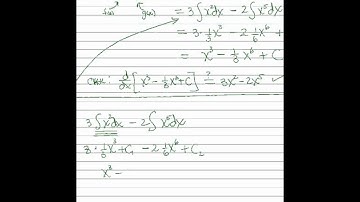 f(x) g(x) = 3∫x²dx - 2∫x⁵dx
= 3·⅓x³ - 2⅙x⁶ +
= x³ - ⅓x⁶ + C
check: d/dx [x³ - ⅓x⁶ + C] ≟ 3x² - 2x⁵ ✓
3∫x²dx - 2∫x⁵dx
3·⅓x³ + C₁ - 2⅙x⁶ + C₂
x³ -